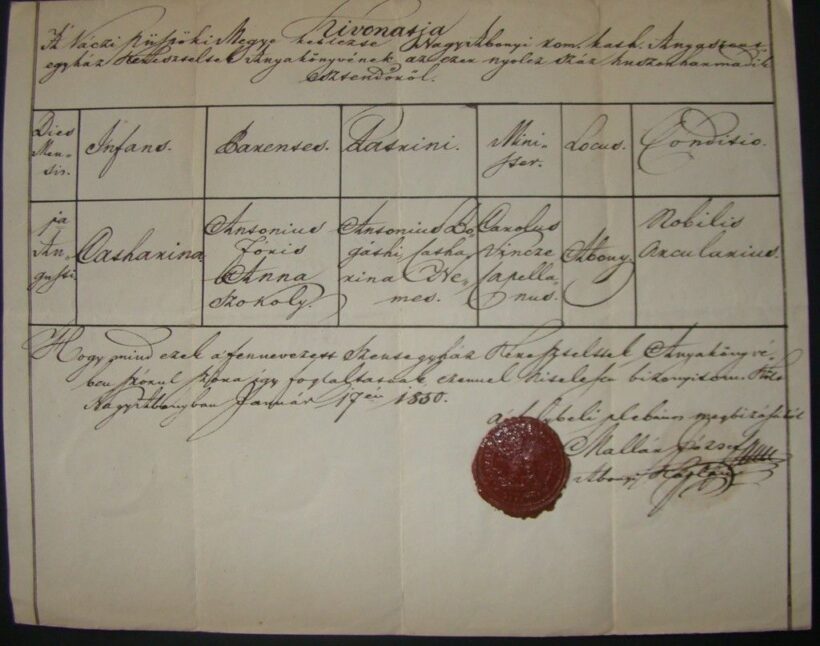 Kivonatja
A' Váczi Püspöki Megye kebelzése Nagy Abonyi rom. kath. Anyaszent-
egyház Kereszteltek Anyakönyvének az ezer nyolcz száz huszonharmadik
Esztendőről.
Dies Men- sis.
Infans.
Parentes.
Patrini.
Mini- ster.
Locus.
Conditio.
1a Au- gusti
Catharina
Antonius Fóris Anna Szokoly.
Antonius Bo- gáthi Catha- rina Ne- mes.
Carolus Vincze Capella- nus.
Abony.
Nobilis Arcularius.
Hogy mind ezek a' fennevezett Szentegyház Kereszteltek Anyakönyvé-
ben szórul szóra így foglaltatnak, ezennel hitelesen bizonyítom. Költ
Nagy Abonyban Január 17én 1850.
a' helybeli plebános megbizásából
Mallár József
Abonyi Káplán